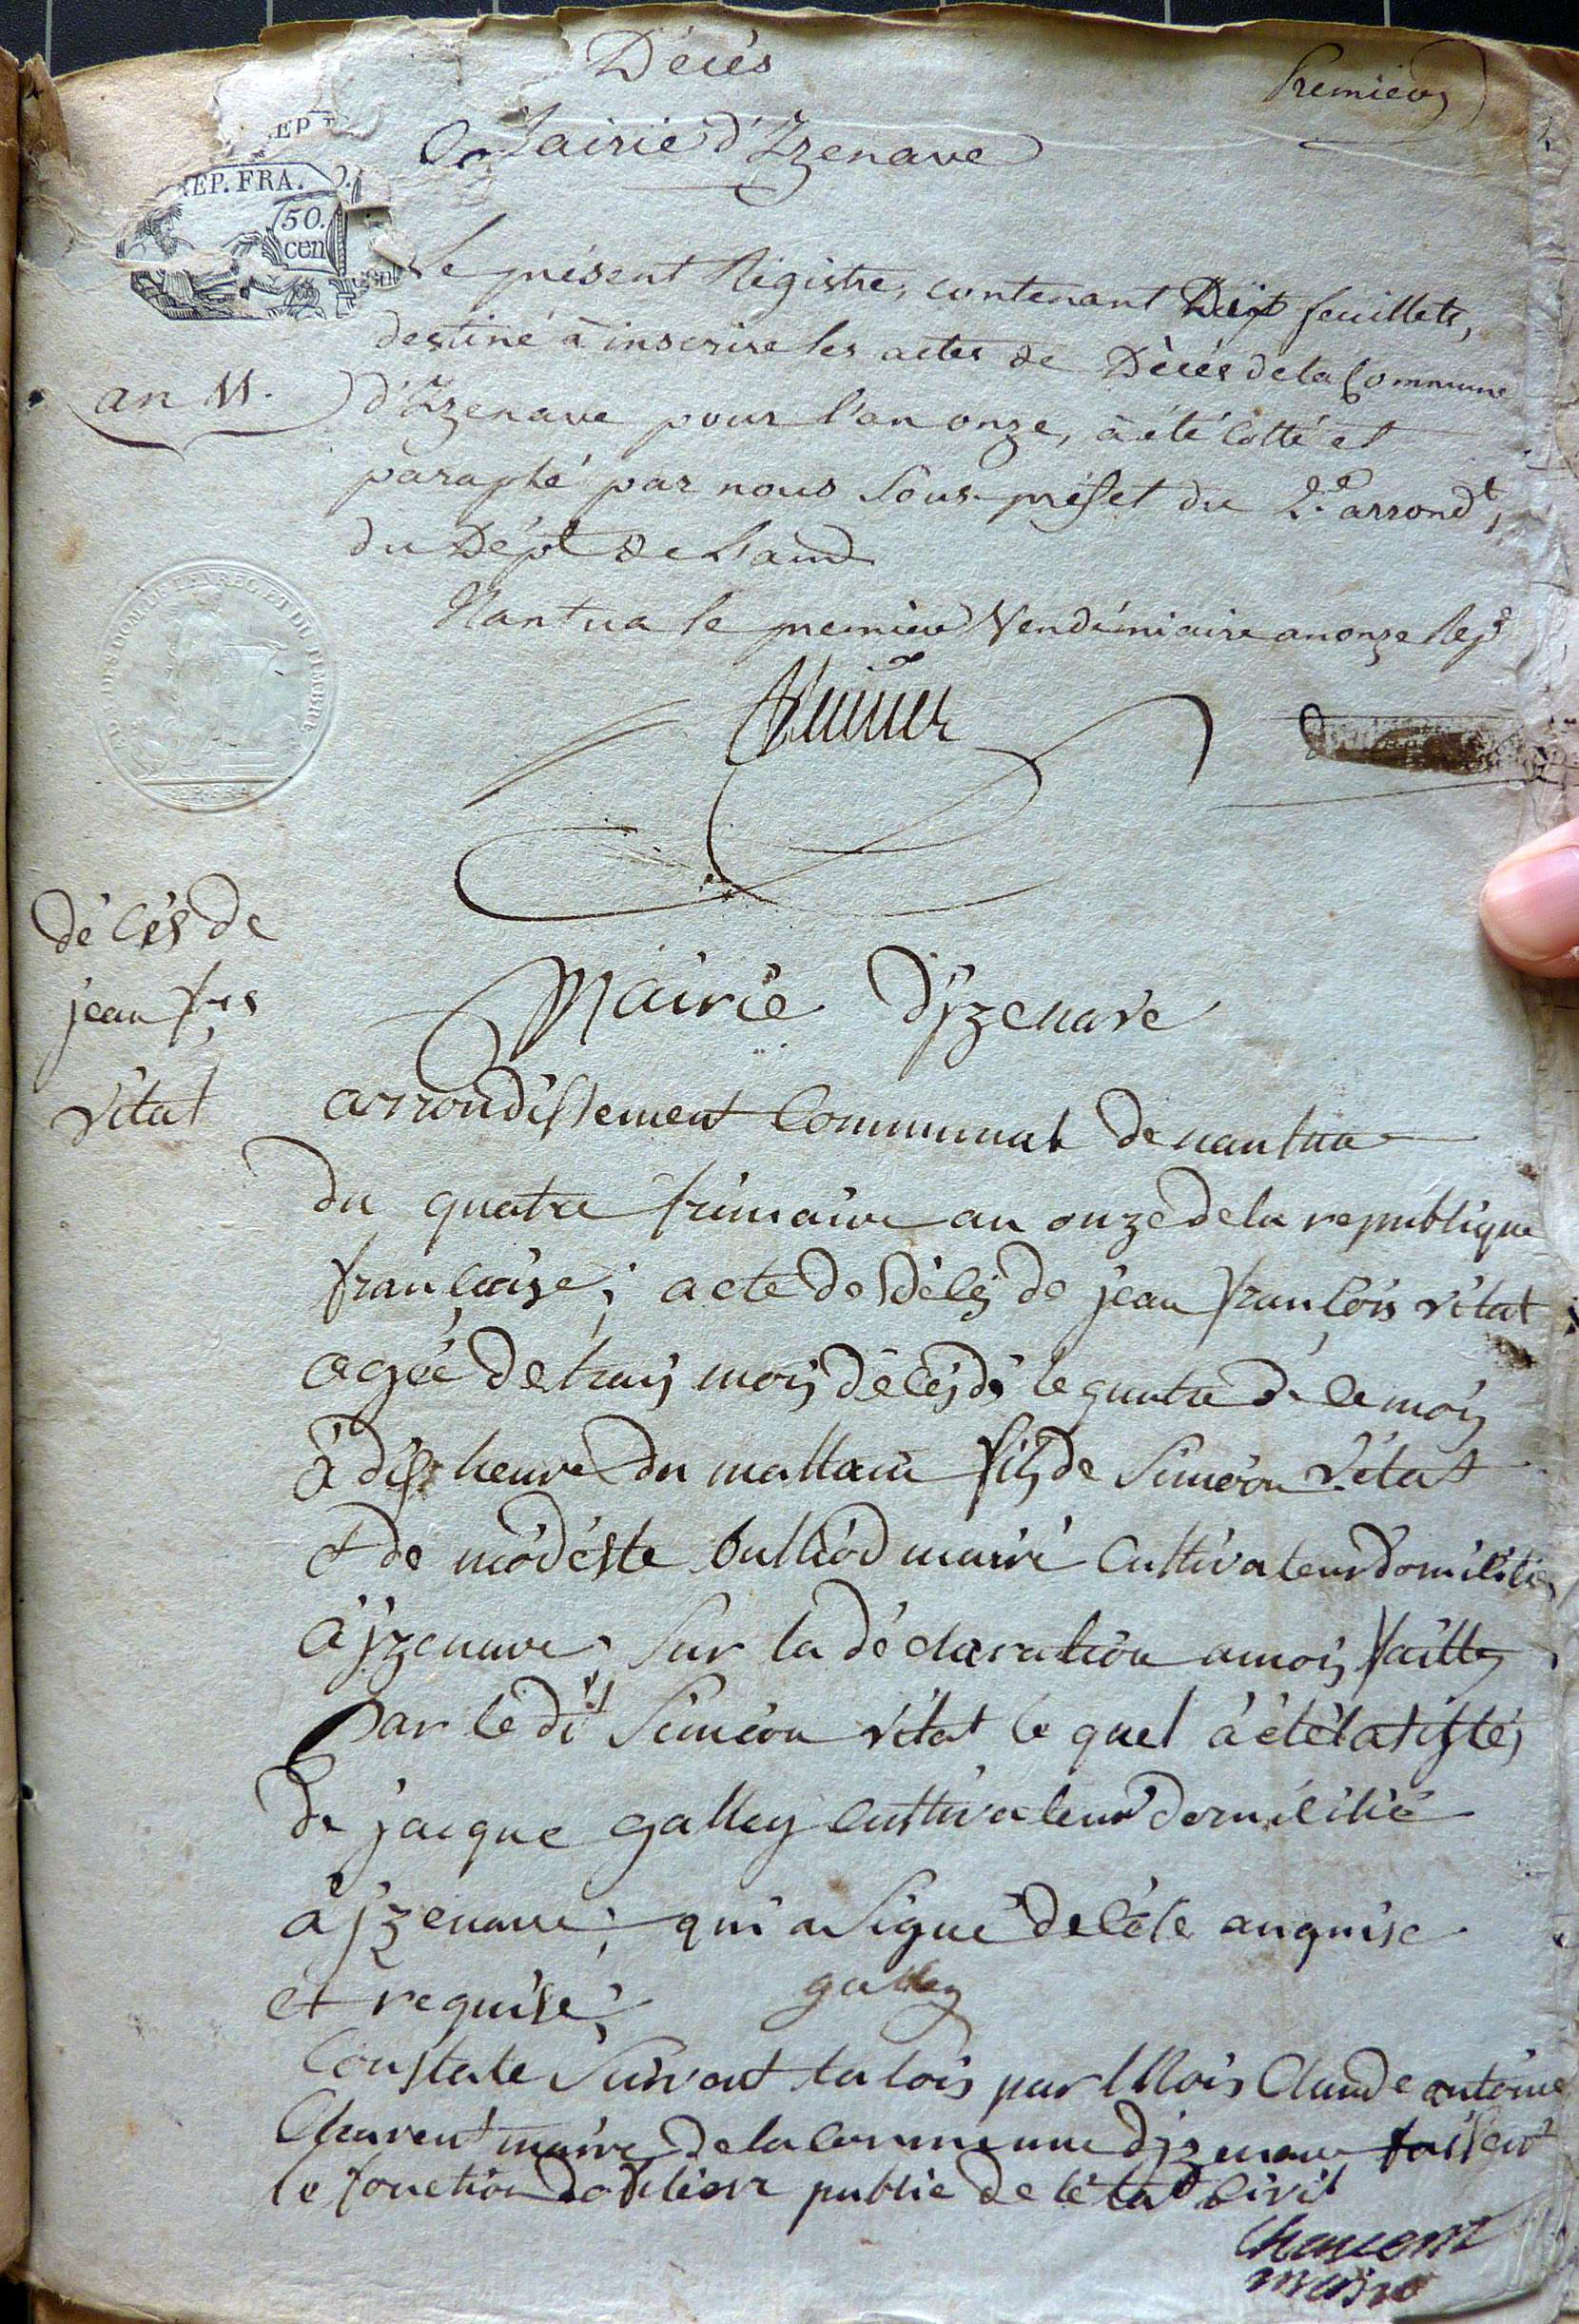 Décès
Premier
Mairie d'Izenave
REP. FRA.
50.
cen
Le présent Régistre, contenant Dix feuillets,
destiné à inscrire les actes de Décès de la Commune
an 11.
d'Izenave pour l'an onze, a été cotté et
paraphé par nous Sous-préfet du 2.e arrondt,
du Dépt de l'ain
Nantua le premier Vendémiaire an onze
DES DOM. DE L'ENREG. ET DU TIMBRE
REP. FRA.
décés de
jean frs
vitat
Mairie d'jzenave
arrondissement Communal de nantua
du quatre frimaire an onze de la republique
françaize; acte de déCéj de jean françois vitat
agéé de trois mois décéjdé le quatre de ce mois
à dix heure du mattain fils de Siméon vitat
et de modéste bulliod mairié Cultivateur domicilié
à jzenave; Sur la déclaration a mois faitte
par le dit Siméon vitat le quel à été
de jacque galley Cultivateur domicilié
à jzenave; qui a Signé de
et requise;
galley
Constate Suivant la lois par Mois Claude antoine
Charvent maire de la Commune d'jzenave faisant
le fonction public de l'état Civil
maire